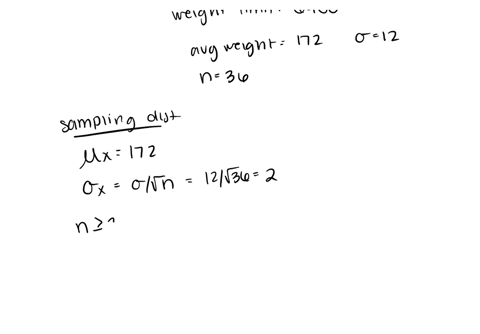 weight limit:
avg weight = 172 σ=12
n=36
sampling dist
μx = 172
σx = σ/√n = 12/√36 = 2
n ≥